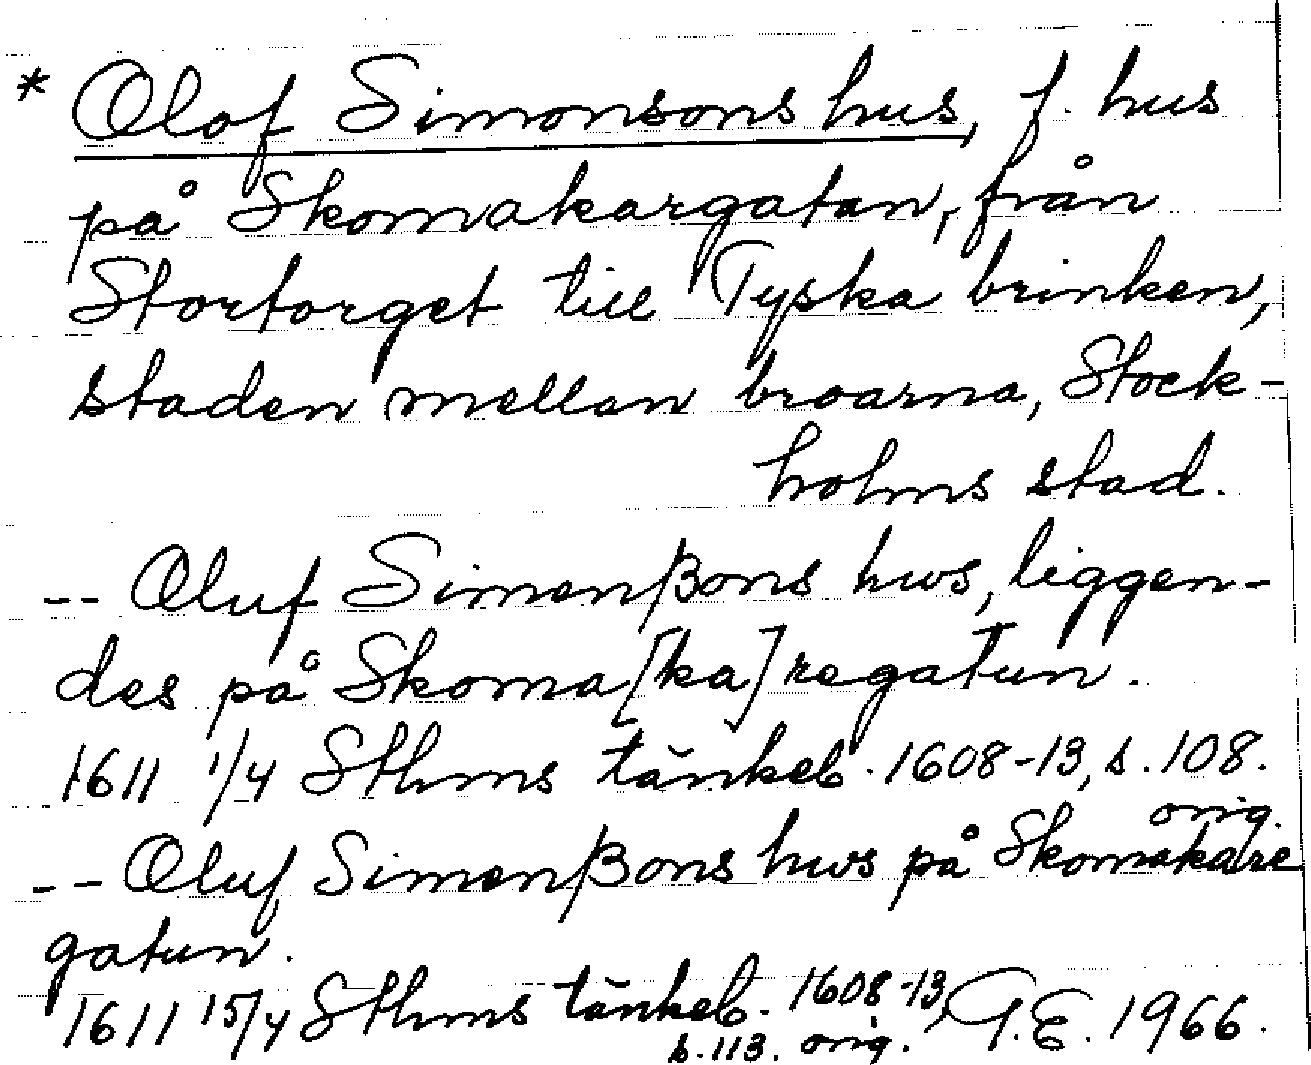 * Olof Simonsons hus, f. hus
på Skomakargatan, från
Stortorget till Tyska brinken,
staden mellan broarna, Stock-
holms stad.
-- Oluf Simenßons hws, liggen-
des på Skoma[ka]regatun.
1611 1/4 Sthms tänkeb. 1608-13, s. 108.
orig.
-- Oluf Simenßons hws på Skomakare
gatun.
1611 15/4 Sthms tänkeb. 1608-13,
s. 113. orig. G.E. 1966.